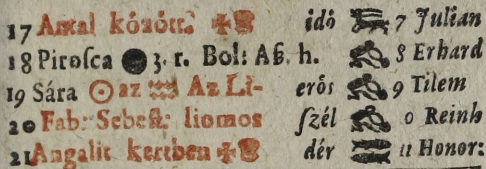 17 Antal között. idö 7 Julian
18 Piroſca 3. r. Bol: Aſz. h. 8 Erhard
19 Sára ☉ az ♒ Az Li- erös 9 Tilem
20 Fab: Sebeſt: liomos ſzél 0 Reinh
21 Angalit kertben dér 11 Honor: